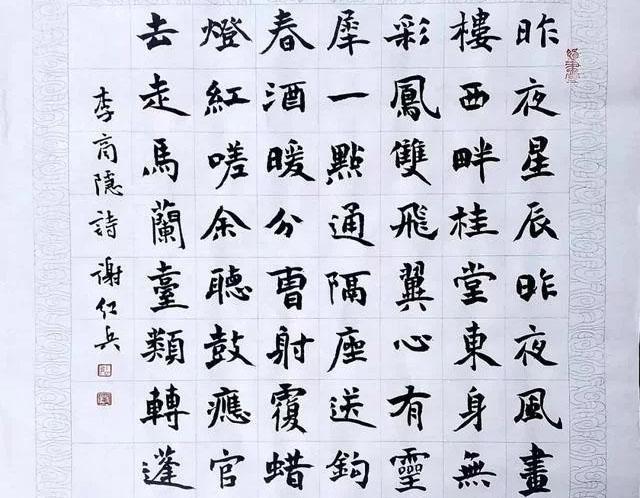 昨夜星辰昨夜風畫
樓西畔桂堂東身無
彩鳳雙飛翼心有靈
犀一點通隔座送鈎
春酒暖分曹射覆蜡
燈紅嗟余聽鼓應官
去走馬蘭臺類轉蓬
李商隱詩 謝红兵